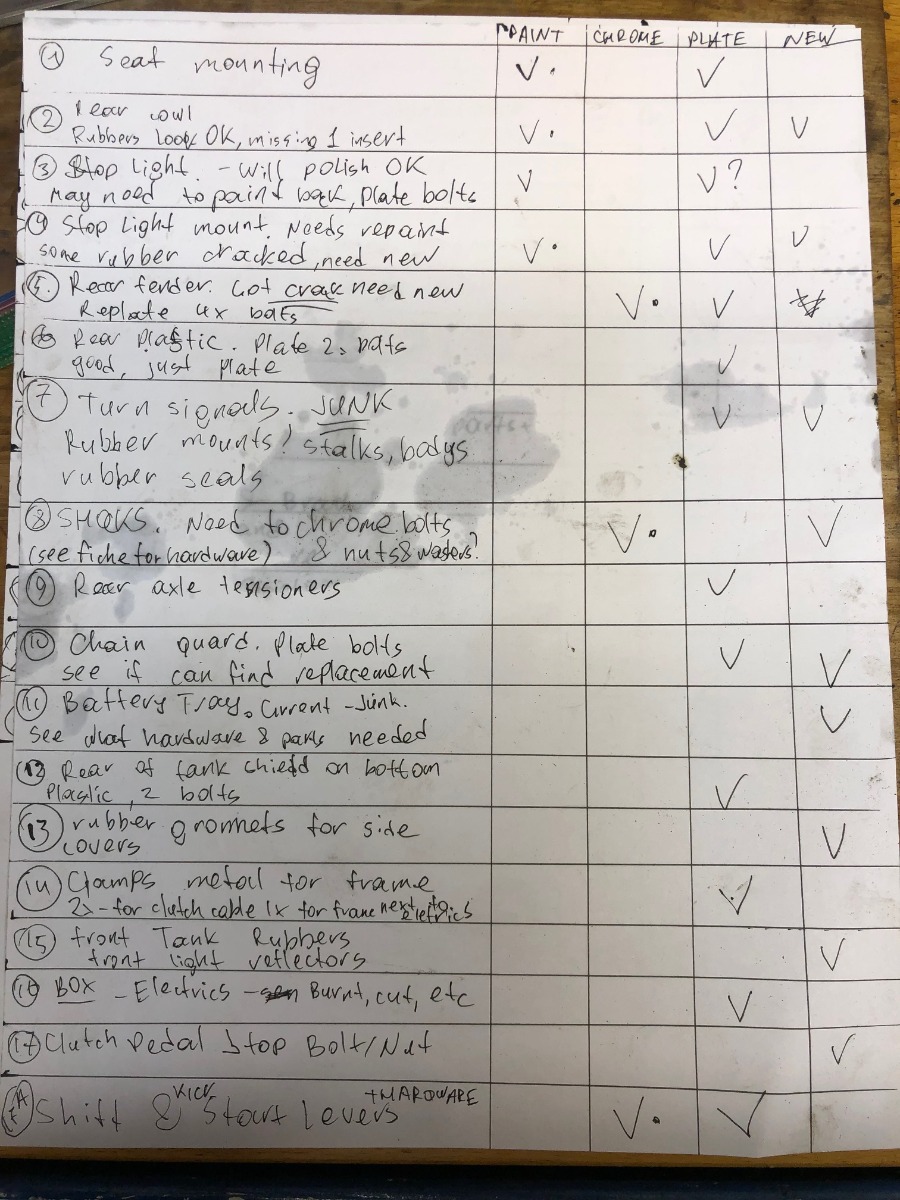 PAINT CHROME PLATE NEW
① Seat mounting V. V
② Rear cowl
Rubbers look OK, missing 1 insert V. V V
③ Stop Light. - Will polish OK
May need to paint back, plate bolts V V?
④ Stop Light mount. Needs repaint
some rubber cracked, need new V. V V
⑤. Rear fender. Got crack need new
Replate 4x bolts V. V
⑥ Rear Plastic. Plate 2x bolts
good, just plate V
⑦ Turn signals. JUNK V V
Rubber mounts! stalks, bodys
rubber seals
⑧ SHOKS. Need to chrome bolts V. V
(see fiche for hardware) & nuts & wasers?
⑨ Rear axle tensioners V
⑩ Chain guard. Plate bolts V V
see if can find replacement
⑪ Battery Tray. Current - Junk. V
See what hardware & parts needed
⑫ Rear of tank shield on bottom
Plastic, 2 bolts V
⑬ rubber grommets for side V
covers
⑭ Clamps metal for frame V
2x - for clutch cable 1x for frame next to eletrics
⑮ front Tank Rubbers V
front light reflectors
⑯ BOX - Electrics - Burnt, cut, etc V
⑰ Clutch Pedal Stop Bolt/Nut V
KICK + HARDWARE
Shift & Start Levers V. V